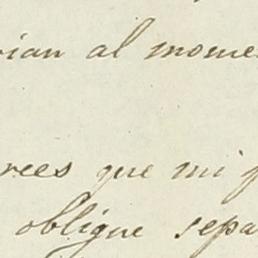 vian al mome
rees que mi p
oblique sepa